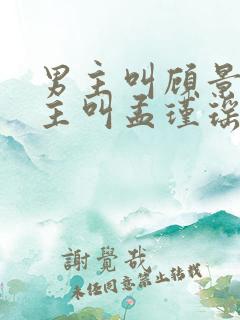 男主叫顾景
主叫孟瑾瑶
謝覺哉
未经同意禁止转载